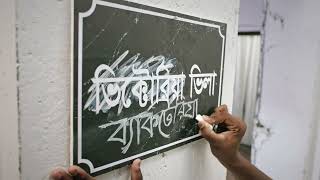 ভিক্টোরিয়া ভিলা
ব্যাকটেরিয়া